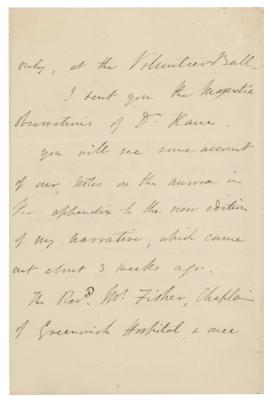 only, at the Volunteer Ball
I sent you the Magnetic
Observations of Dr Kane.
you will see some account
of our notes on the aurora in
the appendix to the new edition
of my narrative, which came
out about 3 weeks ago.
The Revd. Mr. Fisher, Chaplain
of Greenwich Hospital, & once